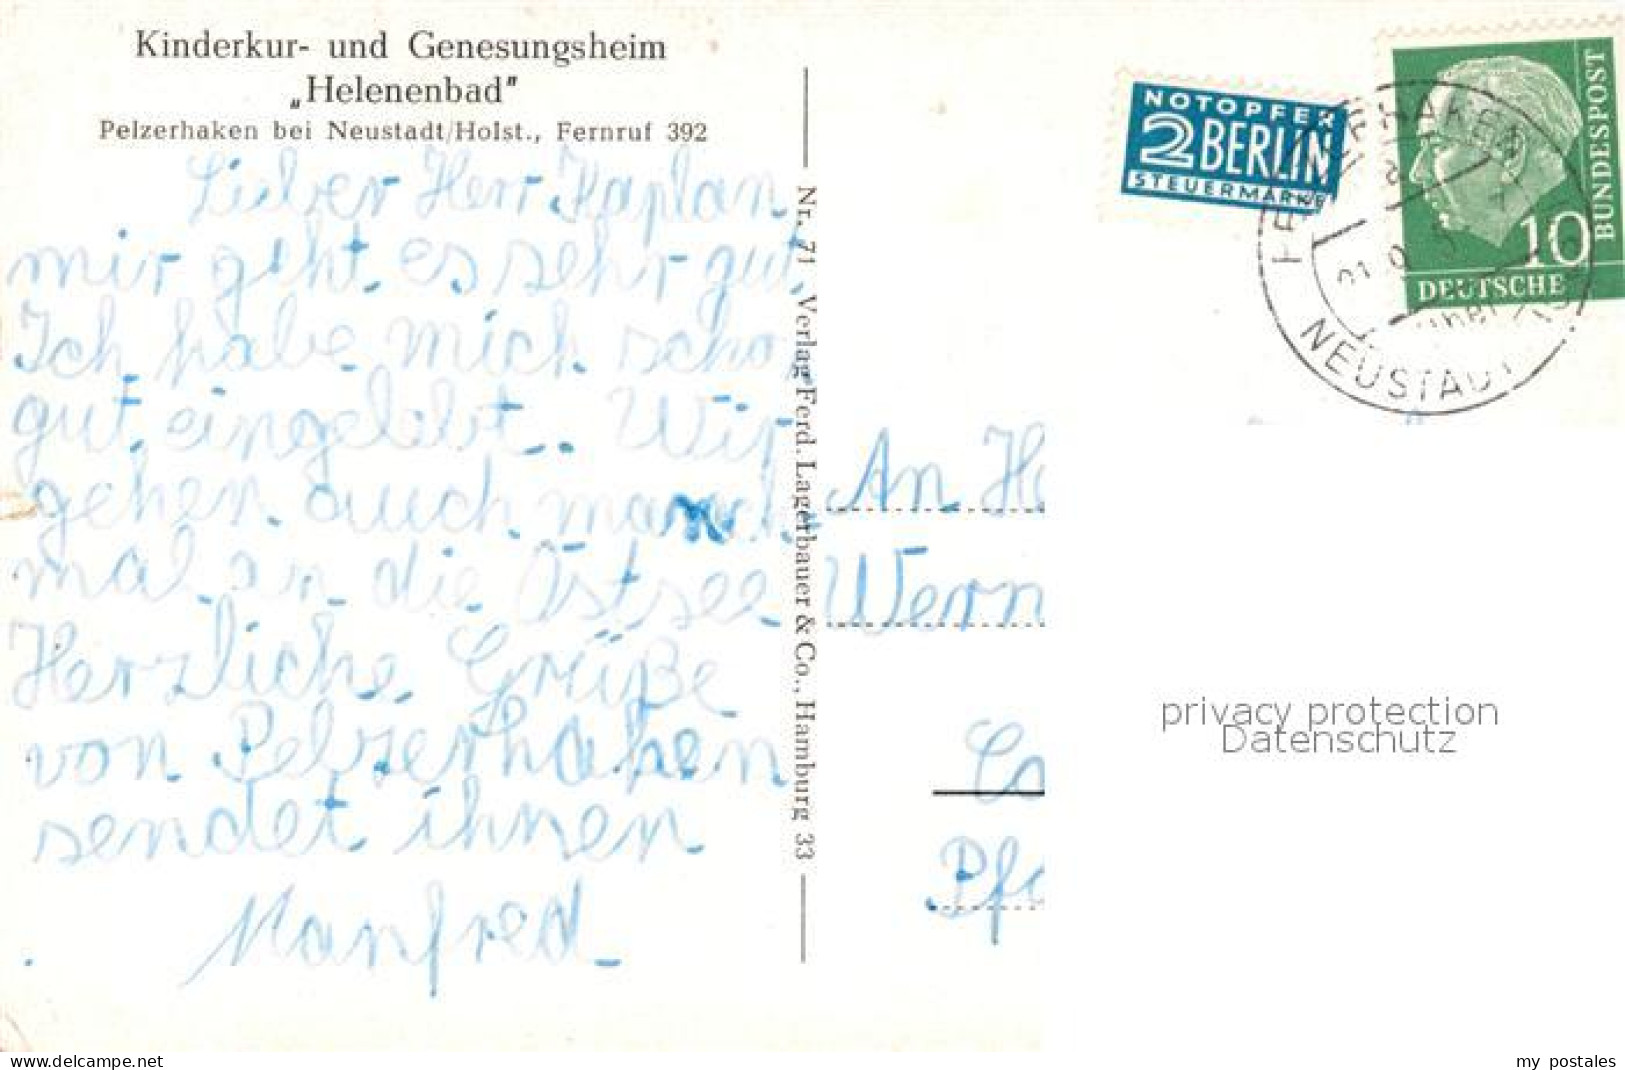 Kinderkur- und Genesungsheim
„Helenenbad"
Pelzerhaken bei Neustadt/Holst., Fernruf 392
Lieber Herr Kaplan
mir geht es sehr gut.
Ich habe mich scho
gut eingelebt. Wir
gehen auch manch
mal an die Ostsee
Herzliche Grüße
von Pelzerhaken
sendet ihnen
Manfred
Nr. 71 Verlag Ferd. Lagerbauer & Co., Hamburg 33
NOTOPFER
2 BERLIN
STEUERMARKE
DEUTSCHE
BUNDESPOST
10
NEUSTADT
An H
Wern
Pfa
privacy protection
Datenschutz
www.delcampe.net
my postales